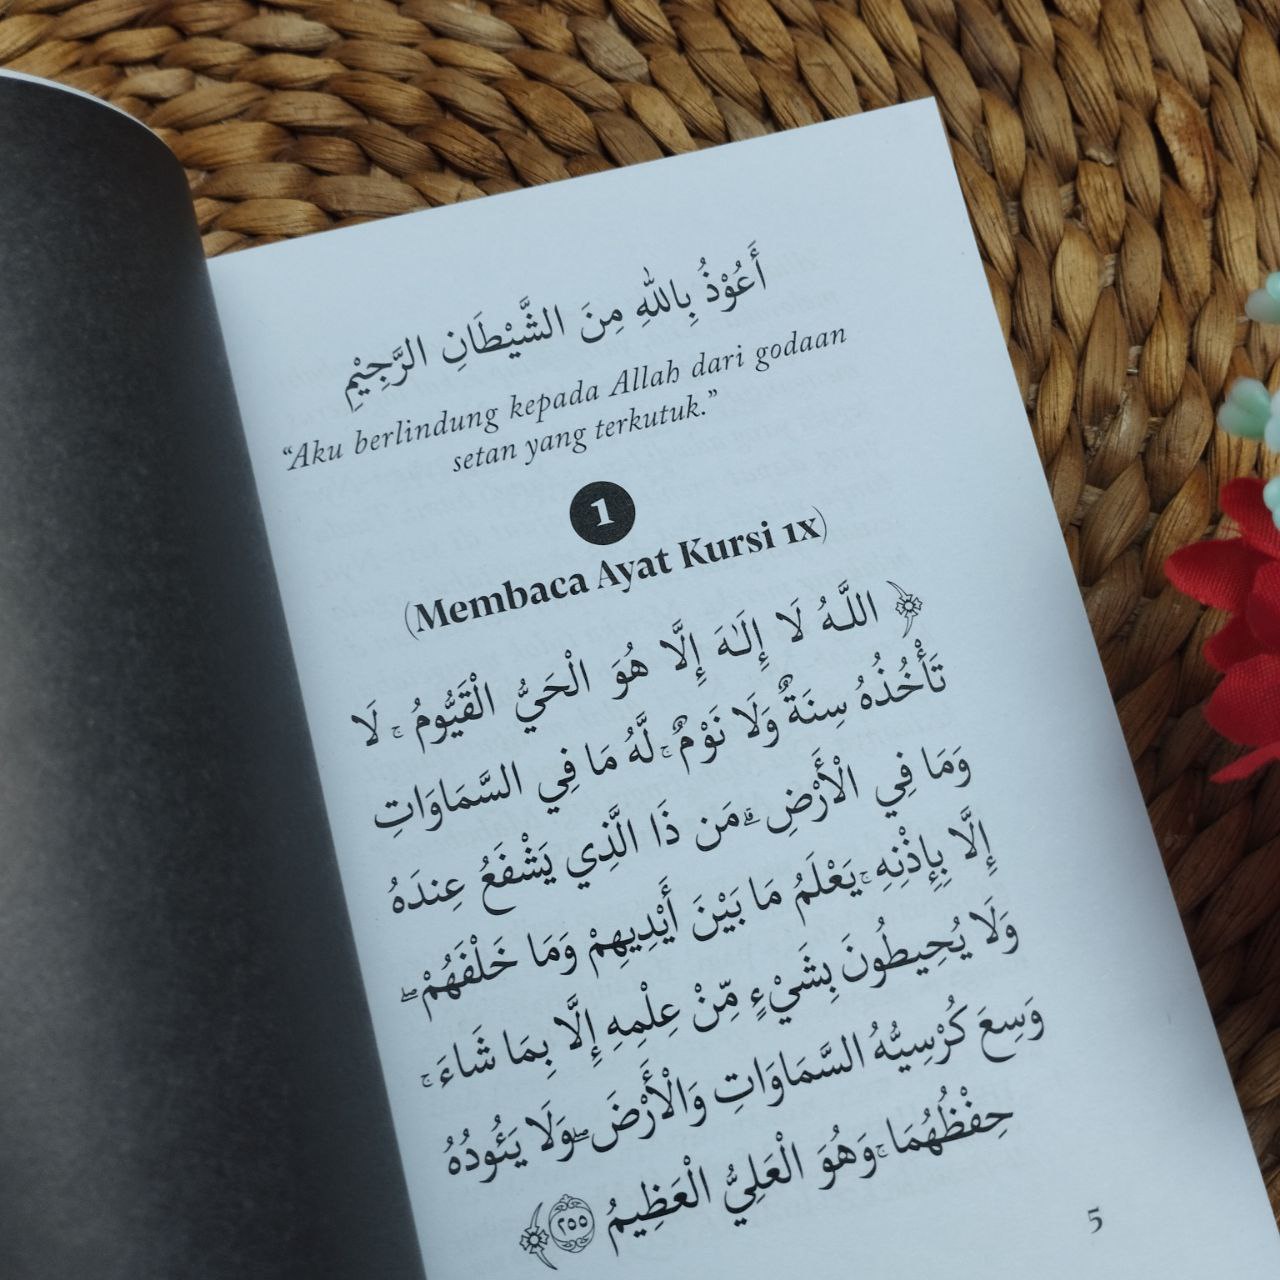 أَعُوْذُ بِاللهِ مِنَ الشَّيْطَانِ الرَّجِيْمِ
“Aku berlindung kepada Allah dari godaan
setan yang terkutuk.”
1
(Membaca Ayat Kursi 1x)
﴿ اللَّـهُ لَا إِلَـٰهَ إِلَّا هُوَ الْحَيُّ الْقَيُّومُ ۚ لَا
تَأْخُذُهُ سِنَةٌ وَلَا نَوْمٌ ۚ لَّهُ مَا فِي السَّمَاوَاتِ
وَمَا فِي الْأَرْضِ ۗ مَن ذَا الَّذِي يَشْفَعُ عِندَهُ
إِلَّا بِإِذْنِهِ ۚ يَعْلَمُ مَا بَيْنَ أَيْدِيهِمْ وَمَا خَلْفَهُمْ ۖ
وَلَا يُحِيطُونَ بِشَيْءٍ مِّنْ عِلْمِهِ إِلَّا بِمَا شَاءَ ۚ
وَسِعَ كُرْسِيُّهُ السَّمَاوَاتِ وَالْأَرْضَ ۖ وَلَا يَئُودُهُ
حِفْظُهُمَا ۚ وَهُوَ الْعَلِيُّ الْعَظِيمُ ٢٥٥ ﴾
5